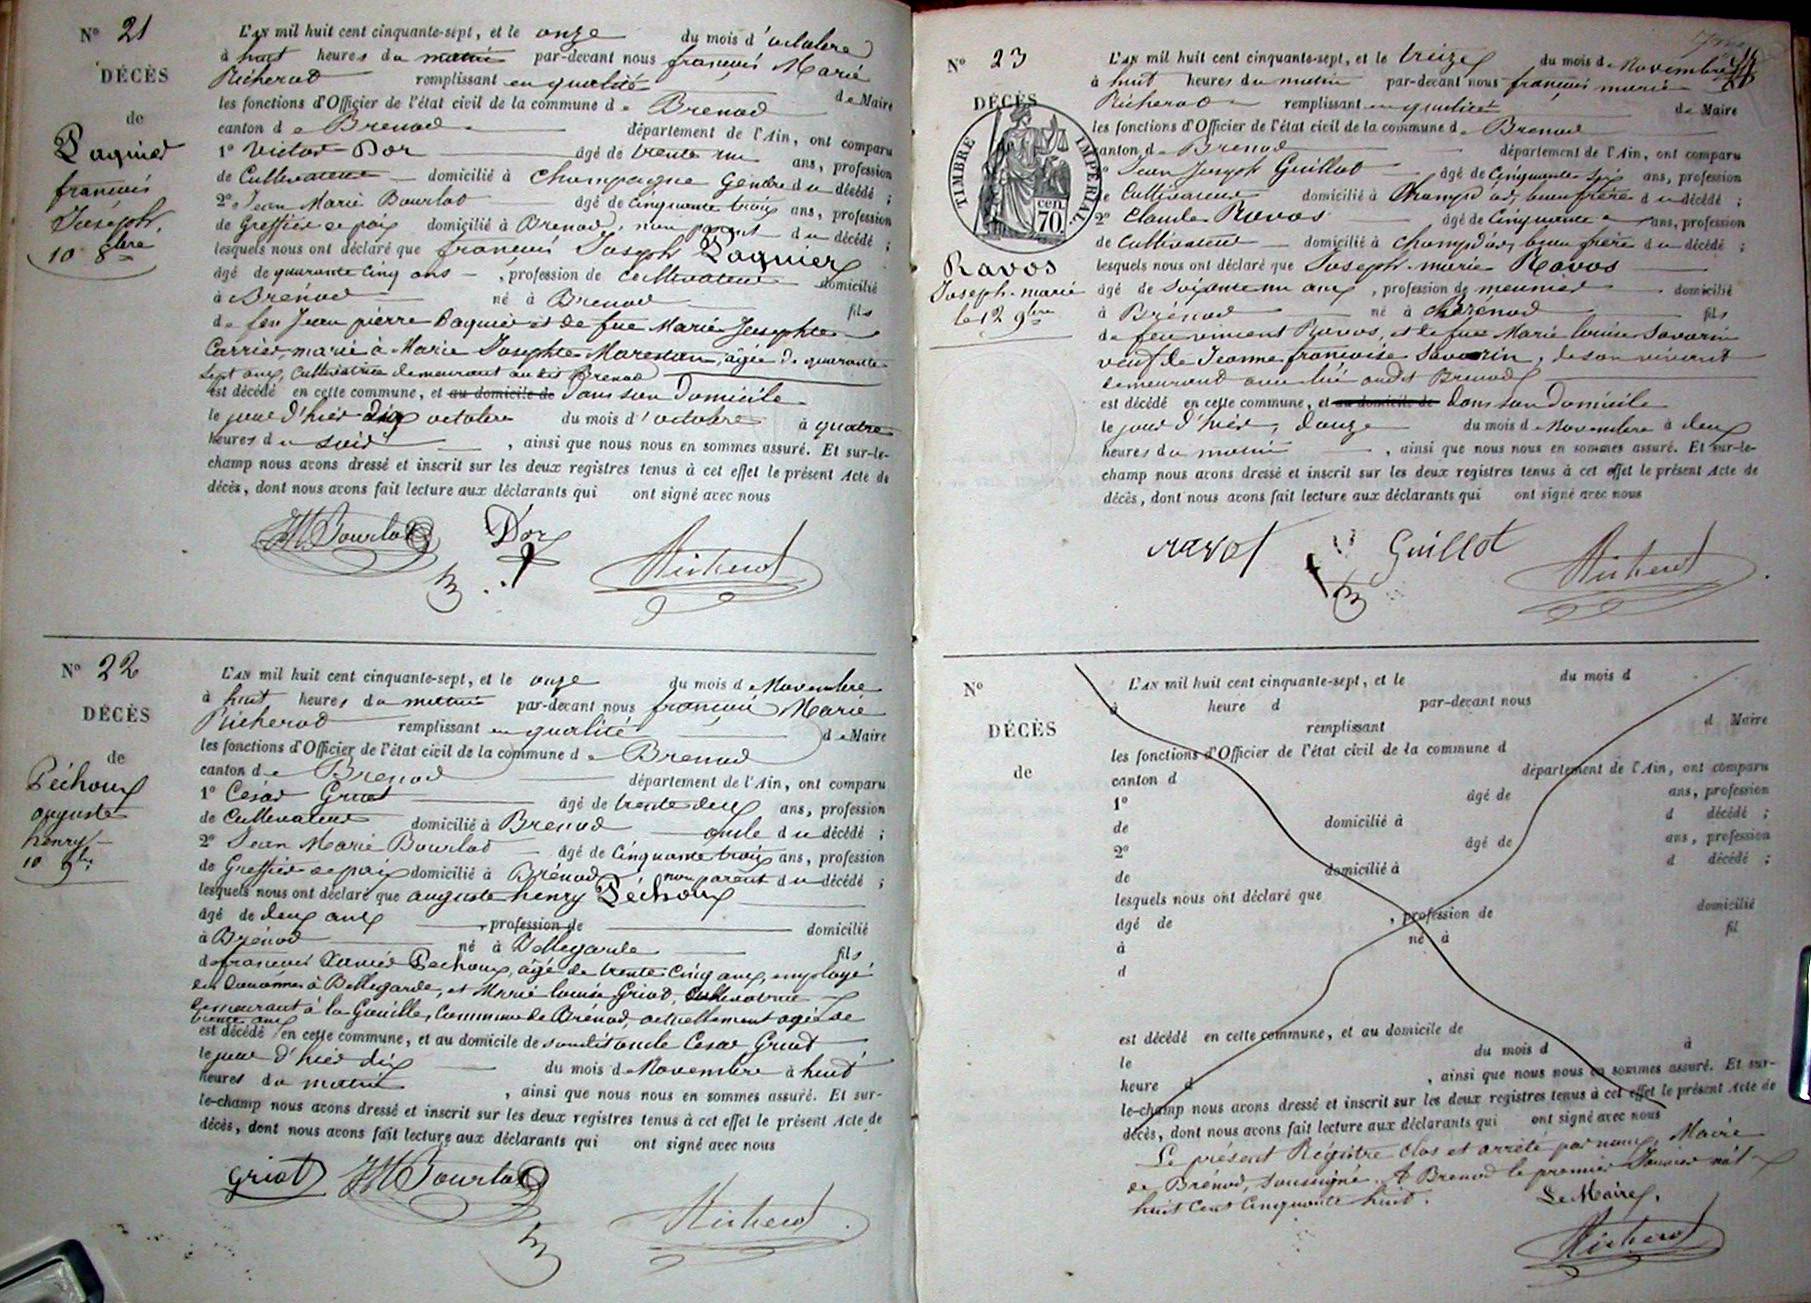 N° 21
DÉCÈS
de
Paquier
françois
Joseph.
10 8bre
L'AN mil huit cent cinquante-sept, et le onze du mois d'octobre
à huit heures du matin par-devant nous françois Marie
Richerod remplissant en qualité de Maire
les fonctions d'Officier de l'état civil de la commune de Brenod
canton de Brenod département de l'Ain, ont comparu
1° Victor Dor âgé de trente un ans, profession
de Cultivateur domicilié à Champagne Gendre du décédé ;
2° Jean Marie Bourlod âgé de cinquante trois ans, profession
de Greffier de paix domicilié à Brenod, non parent du décédé ;
lesquels nous ont déclaré que françois Joseph Paquier
âgé de quarante cinq ans, profession de Cultivateur domicilié
à Brénod né à Brenod fils
de feu Jean pierre Paquier et de fue Marie Josephte
Carrier, marié à Marie Josephte Marestan, âgée de quarante
sept ans, Cultivatrice demeurant au dit Brenod
est décédé en cette commune, et au domicile de dans son Domicile
le jour d'hier dix octobre du mois d'octobre à quatre
heures du soir, ainsi que nous nous en sommes assuré. Et sur-le-
champ nous avons dressé et inscrit sur les deux registres tenus à cet effet le présent Acte de
décès, dont nous avons fait lecture aux déclarants qui ont signé avec nous
JM Bourlod Dor Richerod
N° 22
DÉCÈS
de
Péchoux
auguste
henry
10 9bre
L'AN mil huit cent cinquante-sept, et le onze du mois de Novembre
à huit heures du matin par-devant nous françois Marie
Richerod remplissant en qualité de Maire
les fonctions d'Officier de l'état civil de la commune de Brenod
canton de Brenod département de l'Ain, ont comparu
1° César Griot âgé de trente deux ans, profession
de Cultivateur domicilié à Brenod oncle du décédé ;
2° Jean Marie Bourlod âgé de Cinquante trois ans, profession
de Greffier de paix domicilié à Brénod, non parent du décédé ;
lesquels nous ont déclaré que auguste henry Péchoux
âgé de deux ans, profession de domicilié
à Brénod né à Bellegarde fils
de francois Xavier Pechoux, âgé de trente cinq ans, employé
des Douannes à Bellegarde, et Marie louise Griot, Cultivatrice
demeurant à la Gouille, Commune de Brénod, actuellement agée de
trente ans
est décédé en cette commune, et au domicile de son dit oncle Cesar Griot
le jour d'hier dix du mois de Novembre à huit
heures du matin, ainsi que nous nous en sommes assuré. Et sur-
le-champ nous avons dressé et inscrit sur les deux registres tenus à cet effet le présent Acte de
décès, dont nous avons fait lecture aux déclarants qui ont signé avec nous
Griot JM Bourlod Richerod
N° 23
DÉCÈS
TIMBRE IMPÉRIAL
70 cen
Ravos
Joseph-marie
le 12 9bre
L'AN mil huit cent cinquante-sept, et le treize du mois de Novembre
à huit heures du matin par-devant nous françois marie
Richerod remplissant en qualité de Maire
les fonctions d'Officier de l'état civil de la commune de Brenod
canton de Brenod département de l'Ain, ont comparu
1° Jean Joseph Guillot âgé de Cinquante Six ans, profession
de Cultivateur domicilié à Champd'or, beau frère du décédé ;
2° Claude Ravos âgé de Cinquante ans, profession
de Cultivateur domicilié à champd'or, beau frère du décédé ;
lesquels nous ont déclaré que Joseph-marie Ravos
âgé de soixante un ans, profession de meunier domicilié
à Brénod né à Brénod fils
de feu vincent Ravos, et de fue Marie louise Savarin
veuf de Jeanne françoise Savarin, de son vivant
demeurand avec lui au dit Brenod
est décédé en cette commune, et au domicile de dans son Domicile
le jour d'hier, douze du mois de Novembre à deux
heures du matin, ainsi que nous nous en sommes assuré. Et sur-le-
champ nous avons dressé et inscrit sur les deux registres tenus à cet effet le présent Acte de
décès, dont nous avons fait lecture aux déclarants qui ont signé avec nous
ravot Guillot Richerod
N°
DÉCÈS
de
L'AN mil huit cent cinquante-sept, et le du mois d
à heure d par-devant nous
remplissant d Maire
les fonctions d'Officier de l'état civil de la commune d
canton d département de l'Ain, ont comparu
1° âgé de ans, profession
de domicilié à d décédé ;
2° âgé de ans, profession
de domicilié à d décédé ;
lesquels nous ont déclaré que
âgé de , profession de domicilié
à né à fil
d
est décédé en cette commune, et au domicile de
le du mois d à
heure d , ainsi que nous nous en sommes assuré. Et sur-
le-champ nous avons dressé et inscrit sur les deux registres tenus à cet effet le présent Acte de
décès, dont nous avons fait lecture aux déclarants qui ont signé avec nous
Le présent Régistre clos et arrêté par nous, Maire
de Brénod, soussigné. A Brenod le premier Janvier mil
huit Cent Cinquante huit.
Le Maire,
Richerod